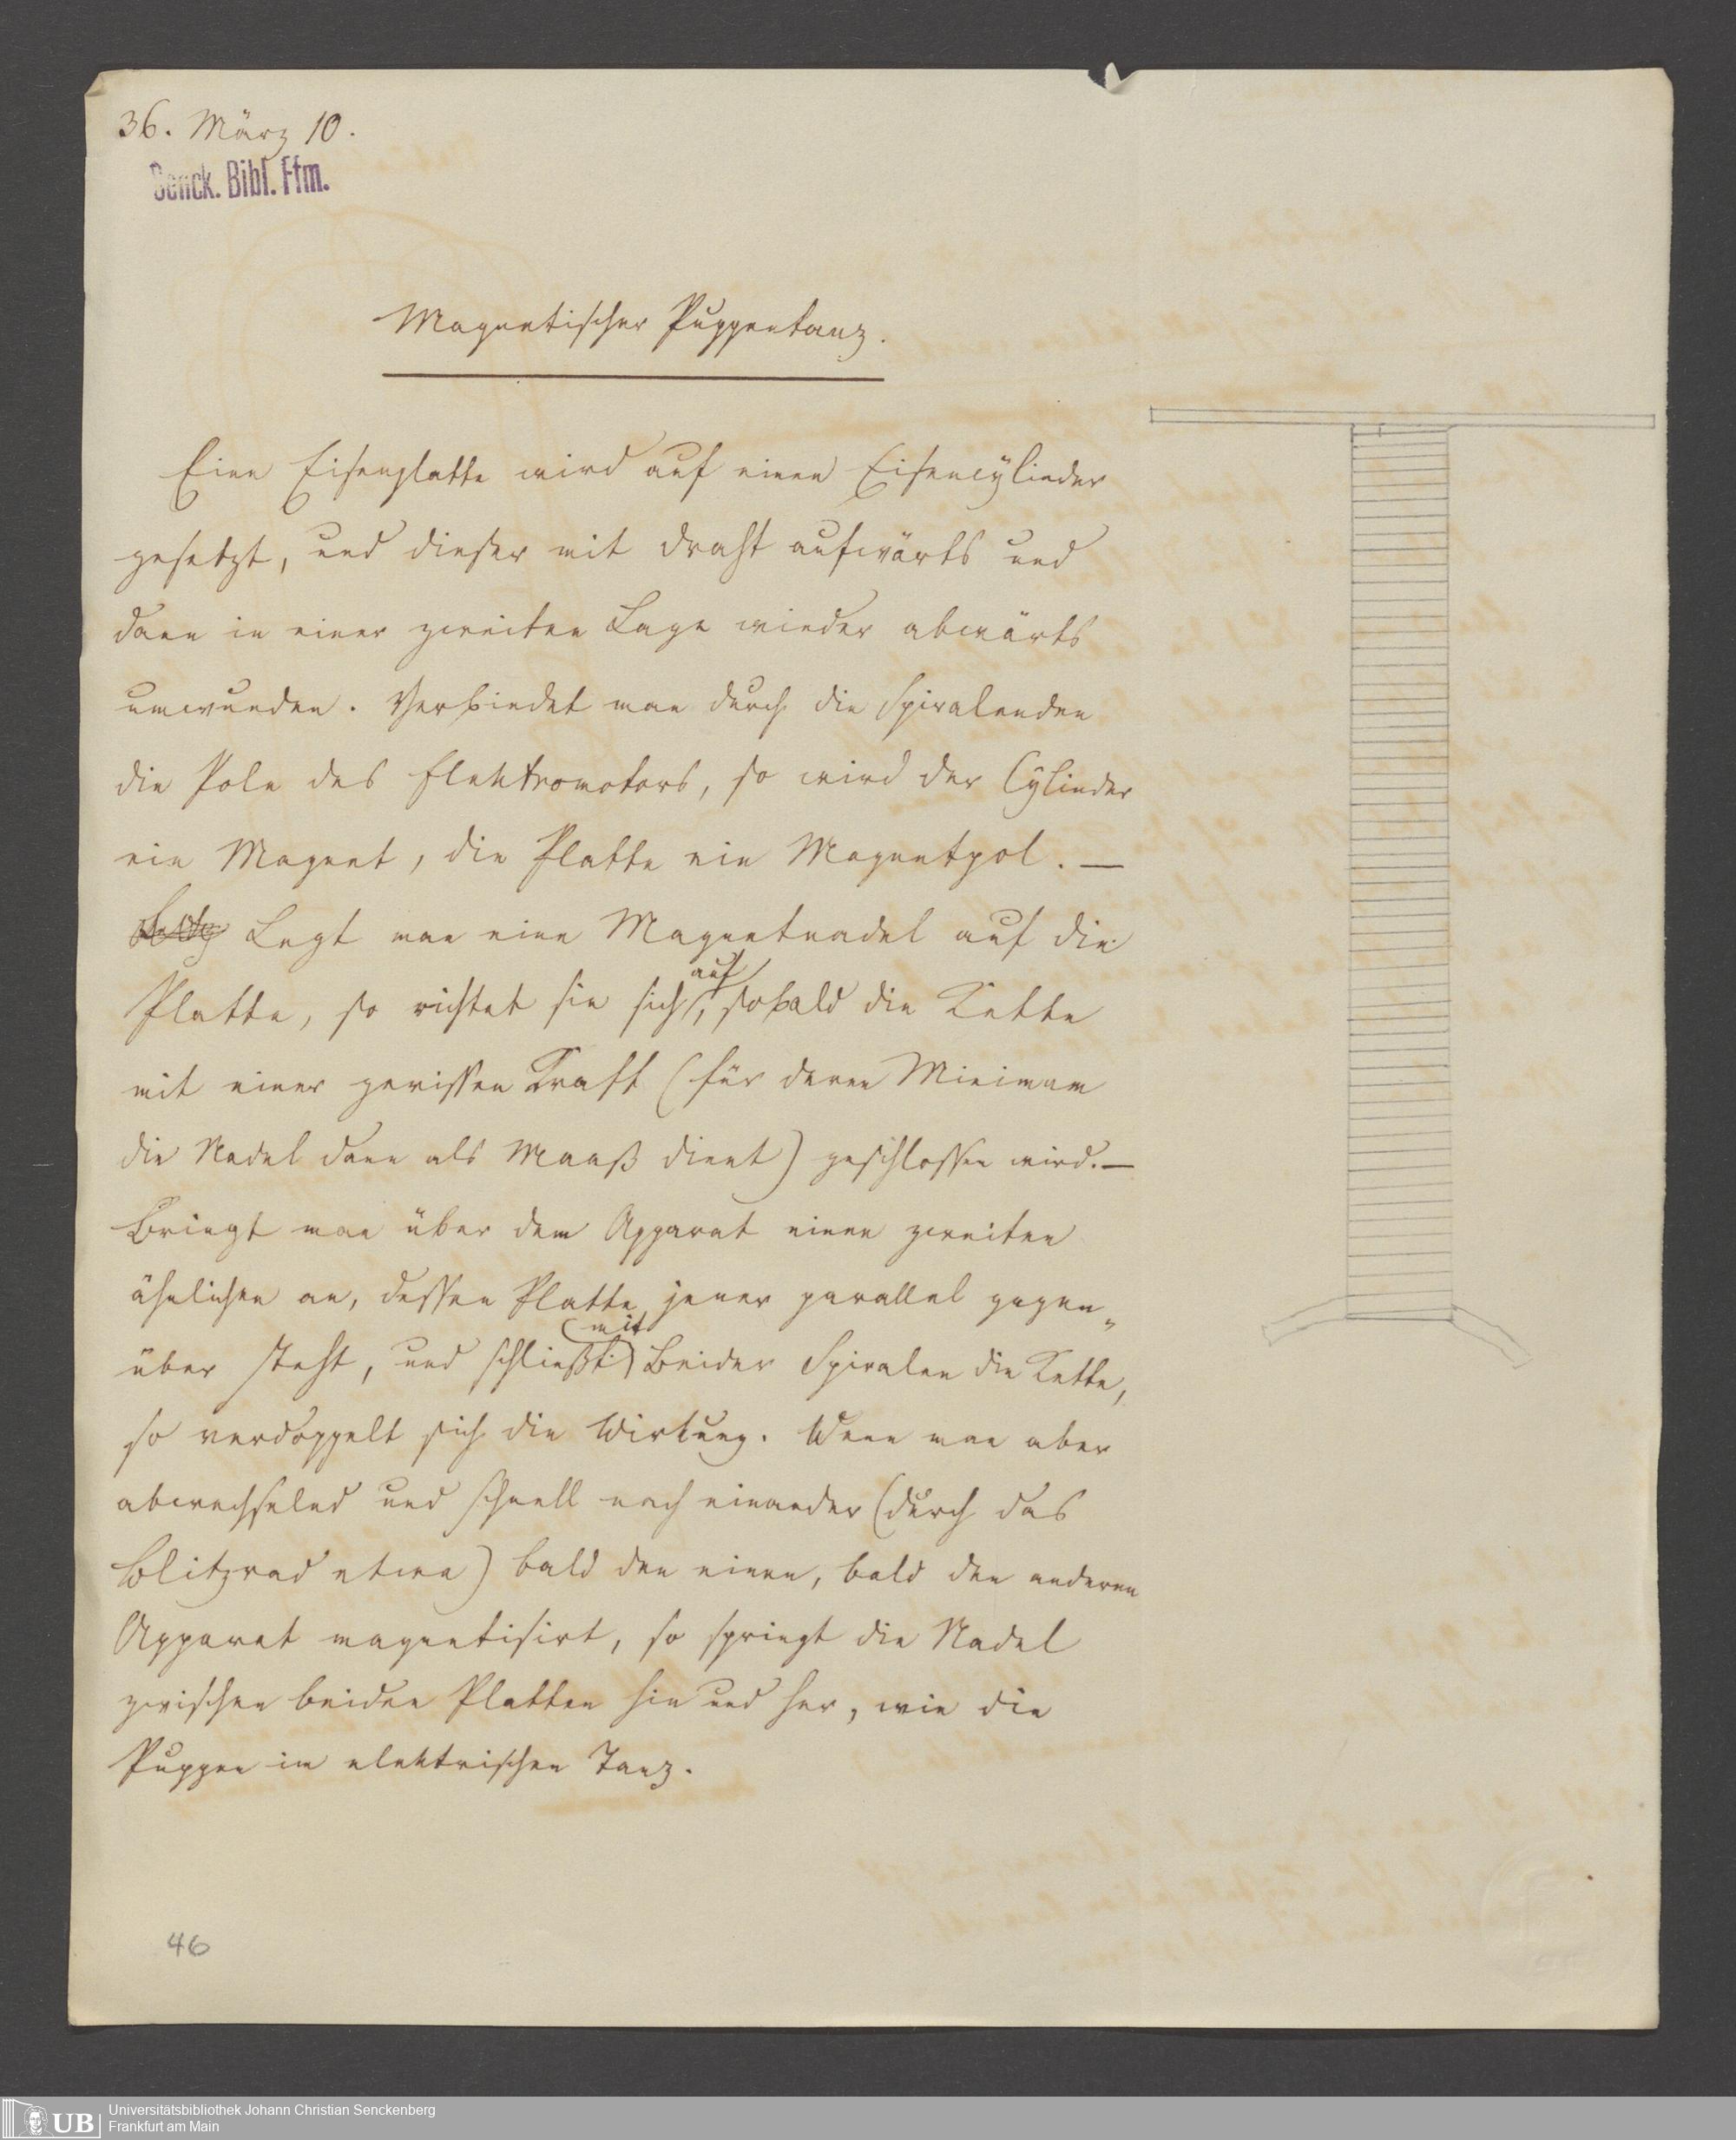 36. März 10.
Senck. Bibl. Ffm.
Magnetischer Puppentanz.
Eine Eisenplatte wird auf einen Eisencÿlinder
gesetzt, und dieser mit Draht aufwärts und
dann in einer zweiten Lage wieder abwärts
umwunden. Verbindet man durch die Spiralenden
die Pole des Elektromotors, so wird der Cÿlinder
ein Magnet, die Platte ein Magnetpol. —
Legt man eine Magnetnadel auf die
Platte, so richtet sie sich auf, sobald die Kette
mit einer gewissen Kraft (für deren Minimum
die Nadel dann als Maaß dient) geschlossen wird. —
Bringt man über dem Apparat einen zweiten
ähnlichen an, dessen Platte jener parallel gegen„
über steht, und schließt mit beider Spiralen die Kette,
so verdoppelt sich die Wirkung. Wenn man aber
abwechselnd und schnell nach einander (durch das
Blitzrad etwa) bald den einen, bald den anderen
Apparat magnetisirt, so springt die Nadel
zwischen beiden Platten hin und her, wie die
Puppen im elektrischen Tanz.
46
UB
Universitätsbibliothek Johann Christian Senckenberg
Frankfurt am Main